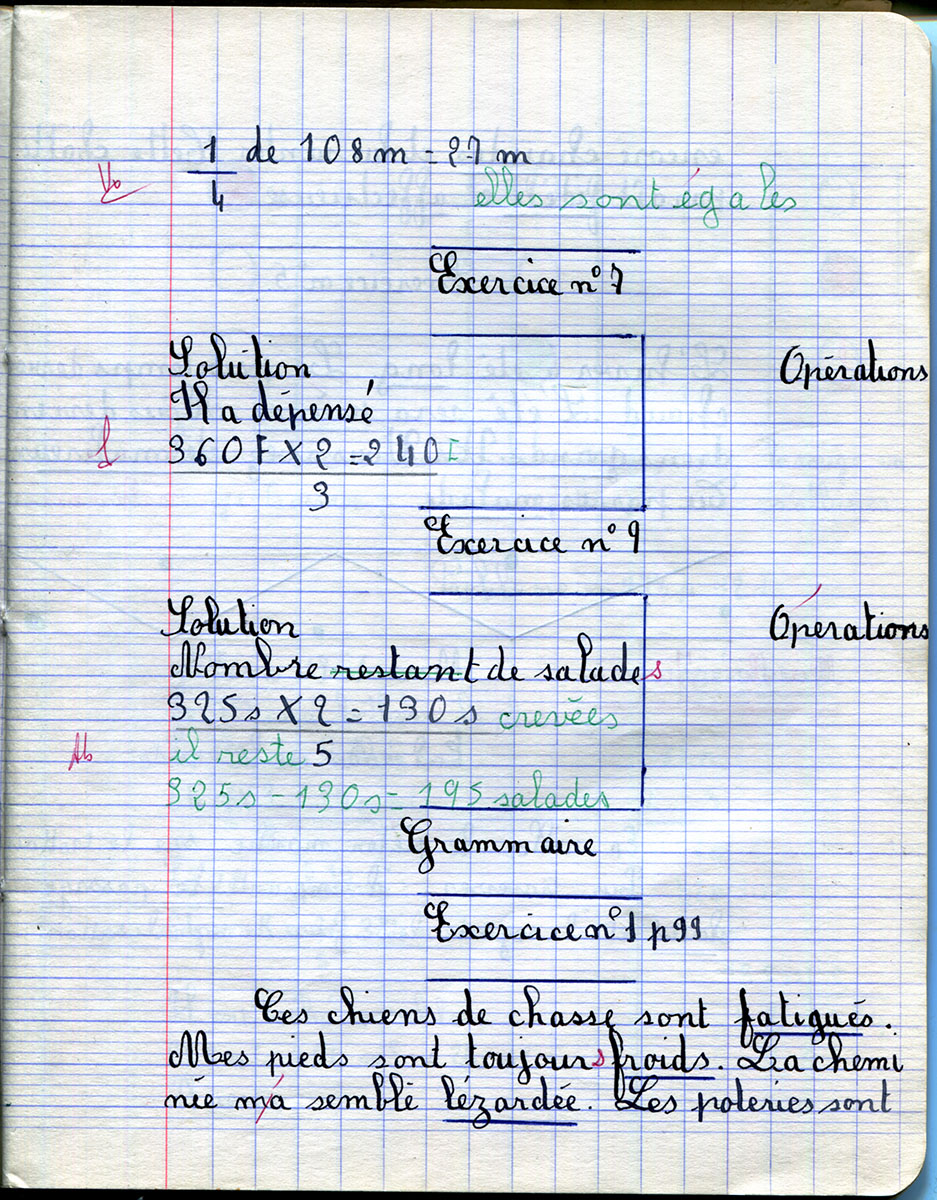 1/4 de 108 m = 27 m
Vo
elles sont égales
Exercice n° 7
Solution Opérations
Il a dépensé
360 F X 2 = 240 F
3
Exercice n° 9
Solution Opérations
Nombre restant de salades
325 s X 2 = 130 s crevées
il reste 5
325 s - 130 s = 195 salades
Grammaire
Exercice n° 1 p 99
Ces chiens de chasse sont fatigués.
Mes pieds sont toujours froids. La chemi
née m'a semblé lézardée. Les poteries sont